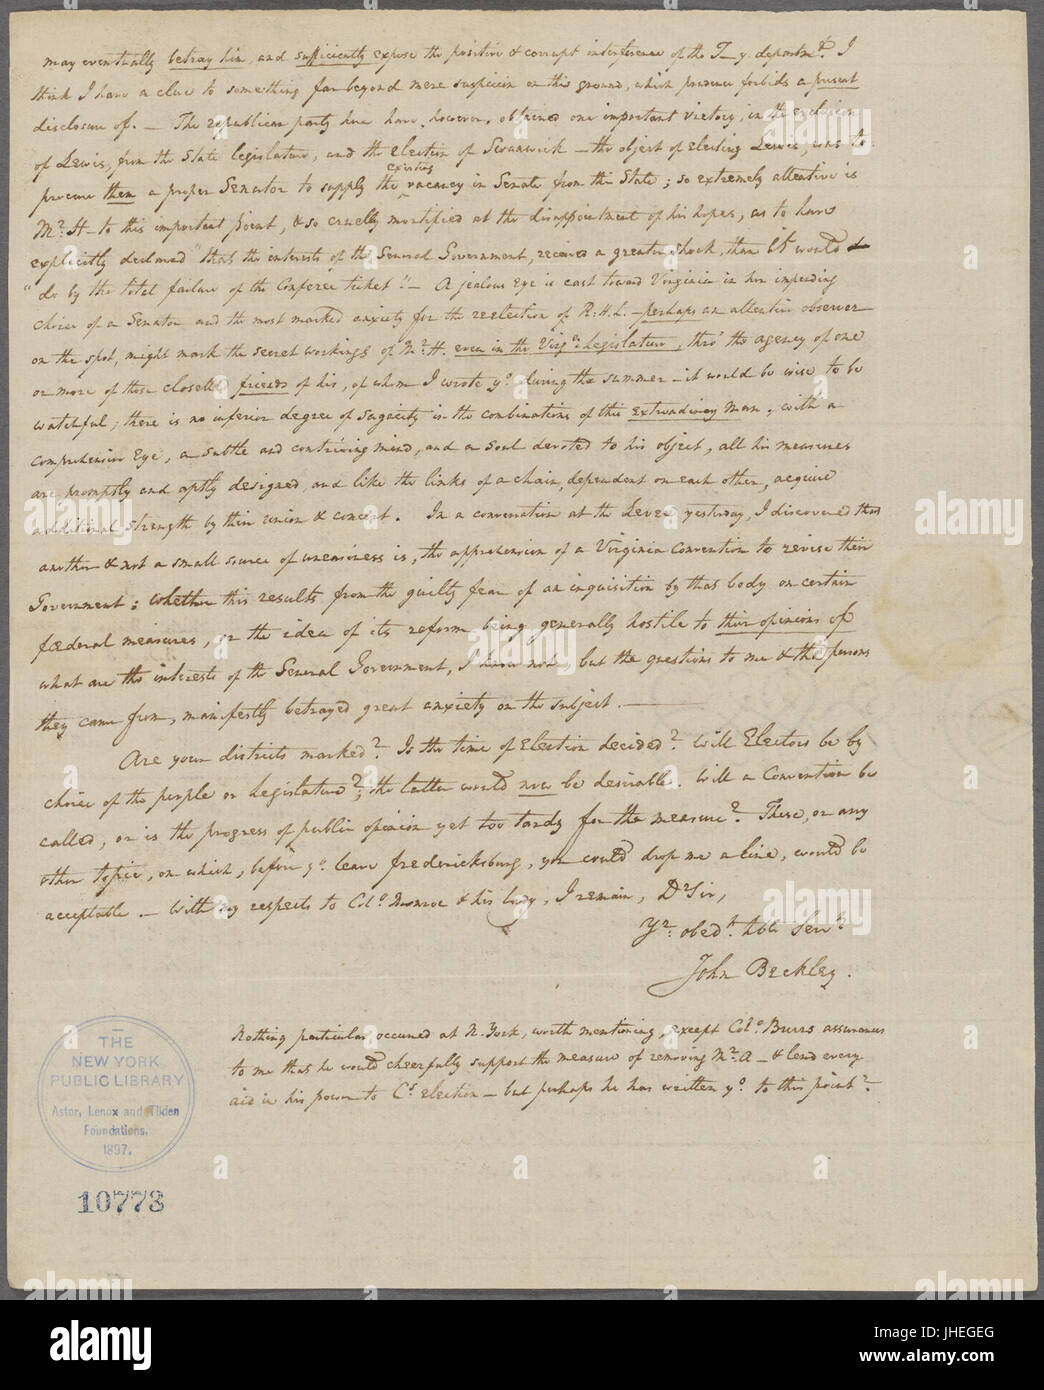 may eventually betray him, and sufficiently expose the positive & corrupt interference of the T–y departmt. I
think I have a clue to something far beyond mere suspicion on this ground, which prudence forbids a present
disclosure of. — The republican party here have, however, obtained one important victory, in the exclusion
of Lewis, from the State legislature, and the election of Swanwick — the object of electing Lewis, was to
procure them a proper Senator to supply the existing vacancy in Senate from this State; so extremely attentive is
Mr. H– to this important point, & so cruelly mortified at the disappointment of his hopes, as to have
explicitly declared "that the interests of the General Government, received a greater shock, than it would
"do by the total failure of the Conferee ticket". — A jealous eye is cast toward Virginia in her impending
choice of a Senator and the most marked anxiety for the reelection of R. H. L. — perhaps an attentive observer
on the spot, might mark the secret workings of Mr. H. even in the Virga. Legislature, thro' the agency of one
or more of those closetted friends of his, of whom I wrote yo. during the summer — it would be wise to be
watchful; there is no inferior degree of sagacity in the combinations of this extraordinary Man, with a
comprehensive Eye, a subtle and contriving mind, and a soul devoted to his object, all his measures
are promptly and aptly designed, and like the links of a chain, dependent on each other, acquire
additional strength by their union & concert. In a conversation at the Levee yesterday, I discovered that
another & not a small source of uneasiness is, the apprehension of a Virginia Convention to revise their
Government; whether this results from the guilty fear of an inquisition by that body on certain
fœderal measures, or the idea of its reform being generally hostile to their opinions of
what are the interests of the General Government, I know not, but the questions to me & the persons
they came from, manifestly betrayed great anxiety on the subject. ———
Are your districts marked? Is the time of Election decided? Will Electors be by
choice of the people or Legislature?; the latter would now be desirable. Will a Convention be
called, or is the progress of public opinion yet too tardy for the measure? These, or any
other topic, on which, before yo. leave fredericksburg, you could drop me a line, would be
acceptable — With my respects to Colo. Monroe & his lady, I remain, Dr Sir,
Yr. obedt. hble Servt.
John Beckley.
Nothing particular occured at N. York, worth mentioning, except Colo. Burrs assurances
to me that he would cheerfully support the measure of removing Mr. A– & lend every
aid in his power to Cs. election — but perhaps he has written yo. to this point?
THE
NEW YORK
PUBLIC LIBRARY
Astor, Lenox and Tilden
Foundations.
1897.
10773
alamy
alamy
alamy
alamy
alamy
alamy
alamy
alamy
alamy
alamy
alamy
Image ID: JHEGEG
www.alamy.com